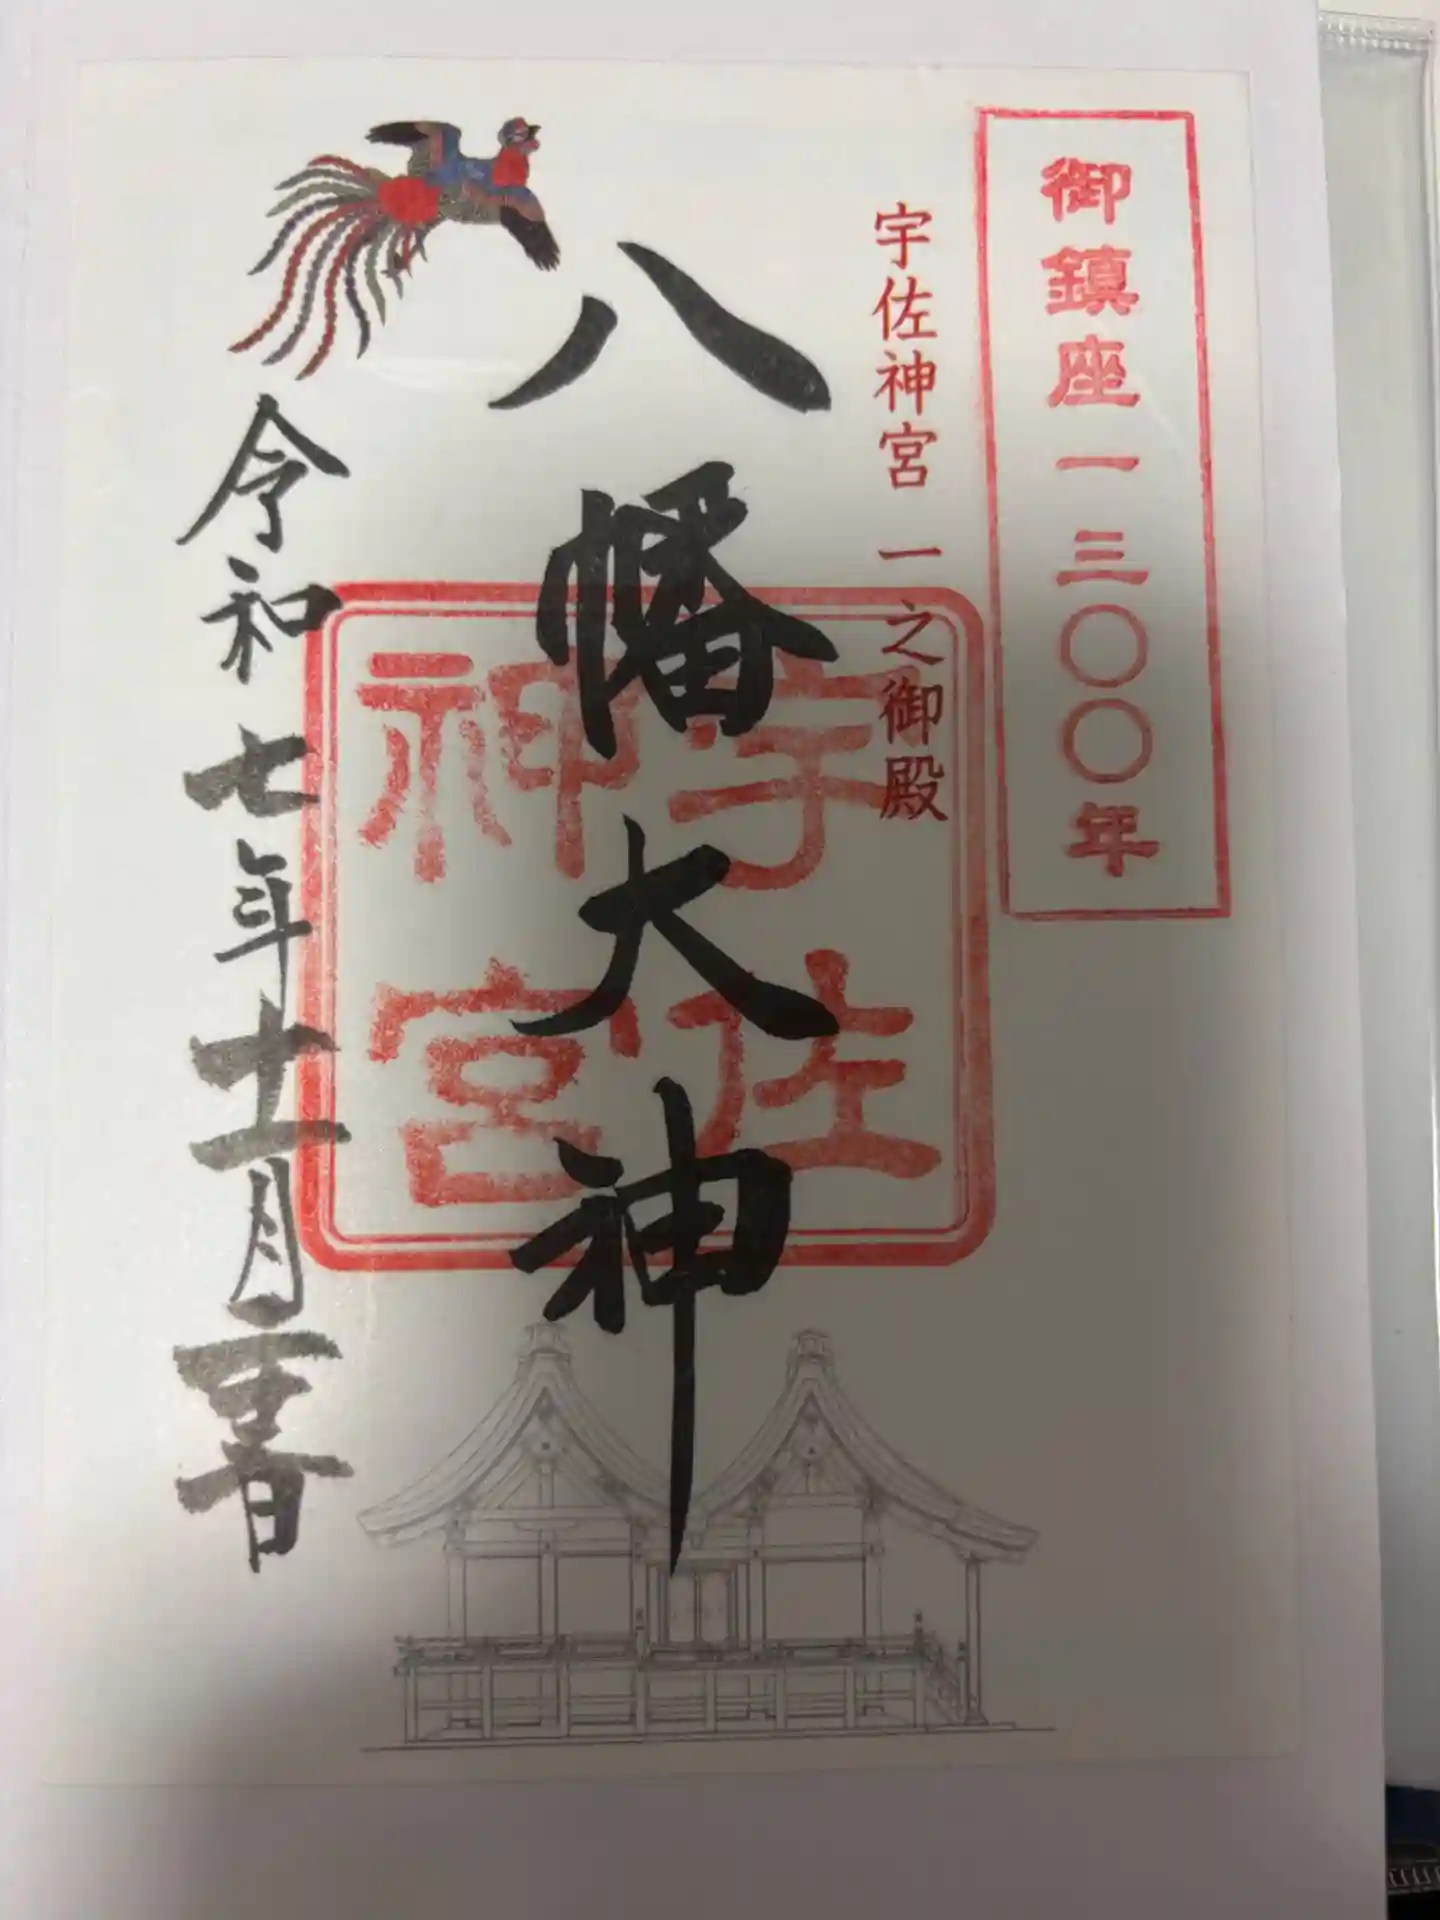 御鎮座一三〇〇年
宇佐神宮 一之御殿
八幡大神
宇佐
神宮
令和七年十一月 日